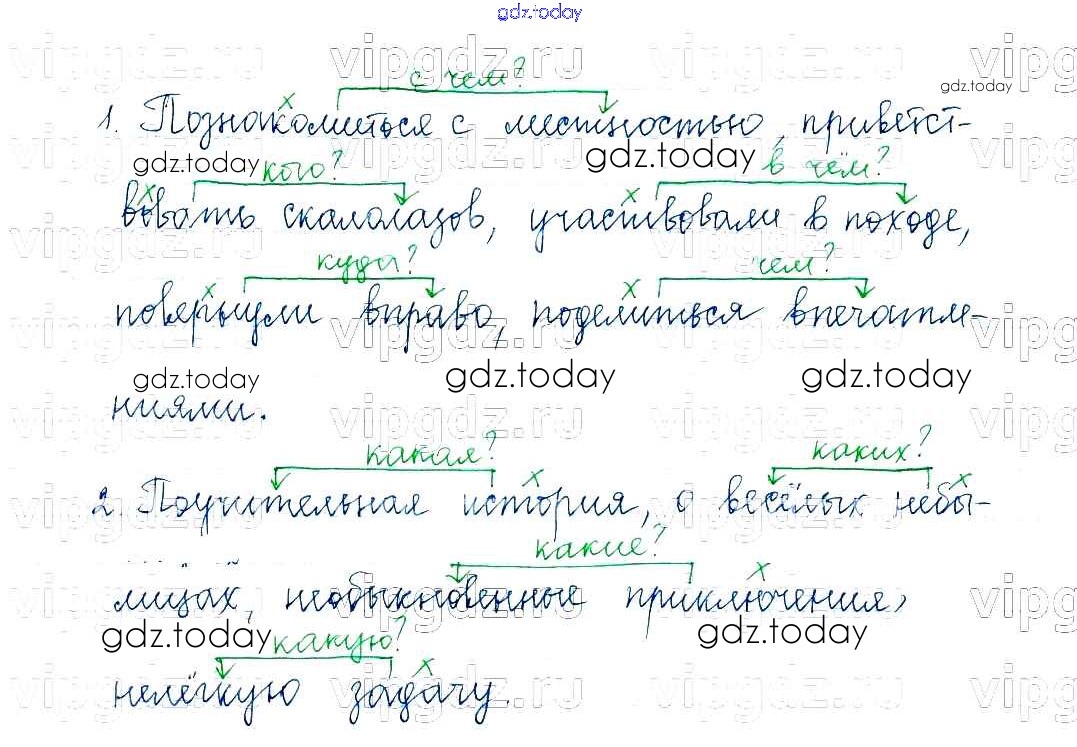 gdz.today
vipgdz.ru vipgdz.ru vipgdz.ru vipg
с чем?
gdz.today
1. Познакомиться с местностью, приветст-
gdz.today gdz.today
кого? в чём?
вовать скалолазов, участвовали в походе,
куда? чем?
повернули вправо, поделиться впечатле-
gdz.today gdz.today gdz.today
ниями.
какая? каких?
2. Поучительная история, о весёлых небы-
какие?
лицах, необыкновенные приключения,
gdz.today какую? gdz.today
нелёгкую задачу.